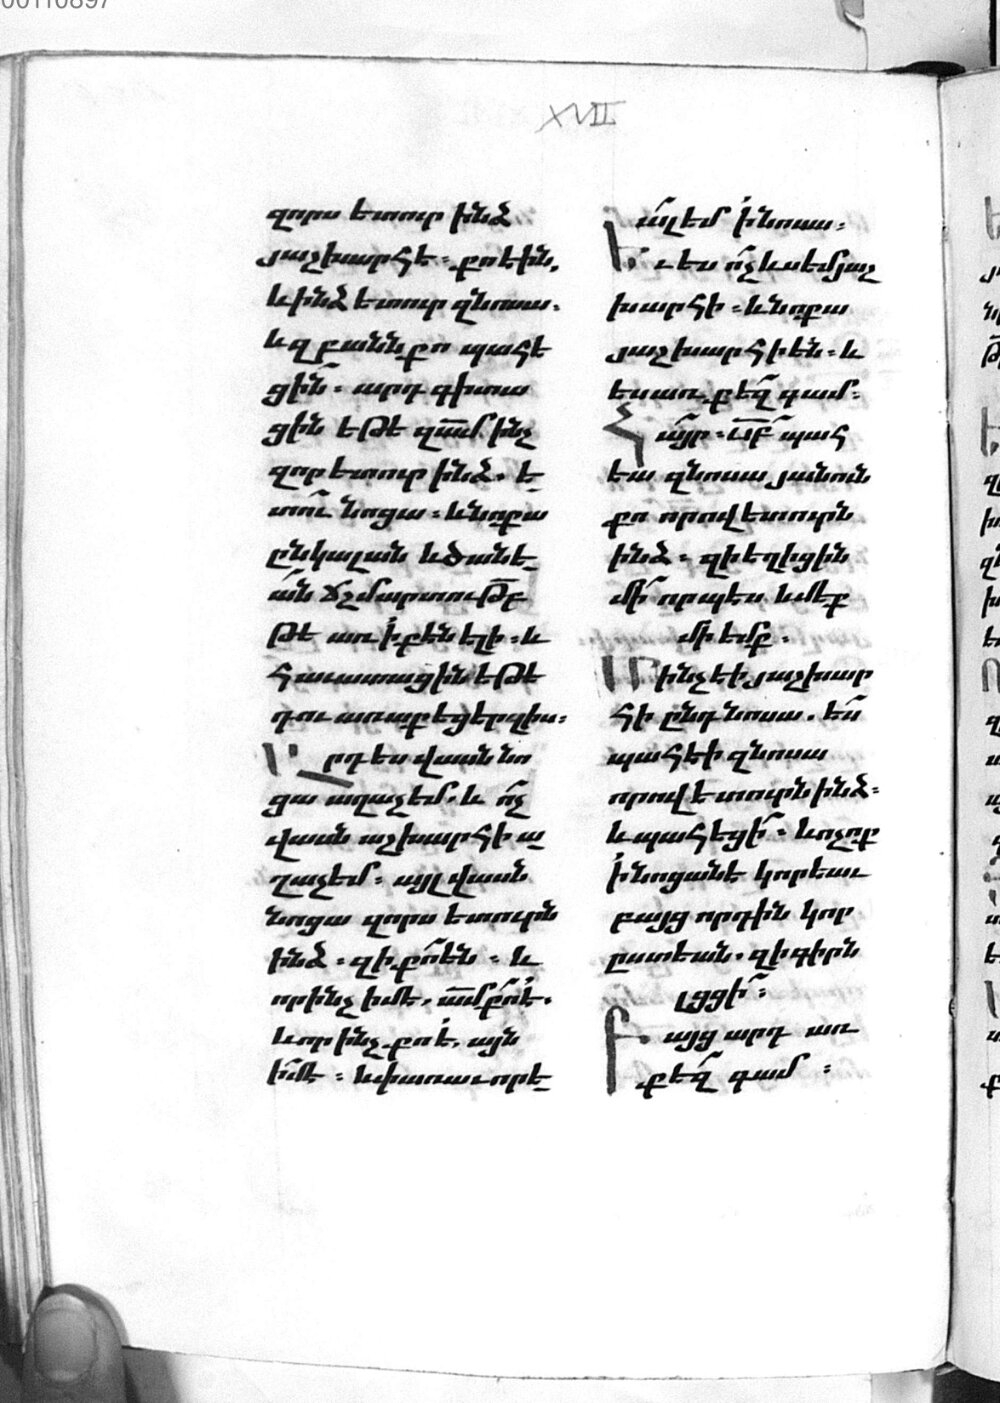 00110897
XVII
զորս ետուր ինձ
յաշխարհէ. քո էին,
և ինձ ետուր զնոսա.
և զբանն քո պահե
ցին. արդ գիտա
ցին եթէ զամ ինչ
զոր ետուր ինձ. ե
տու նոցա. և նոքա
ընկալան և ծանե
ան ճշմարտութբ
թէ առ ի քէն ելի. և
հաւատացին եթէ
դու առաքեցեր զիս.
Արդ ես վասն նո
ցա աղաչեմ. և ոչ
վասն աշխարհի ա
ղաչեմ. այլ վասն
նոցա զորս ետուրն
ինձ. զի քո են. և
որ ինչ իմ է, ամ քո է.
և որ ինչ քո է, այն
իմ է. և փառաւորե
ալ եմ ի նոսա.
Եւ ես ոչ ևս եմ յաշ
խարհի. և նոքա
յաշխարհի են. և
ես առ քեզ գամ.
Հայր. սբ պահ
եա զնոսա յանուն
քո որով ետուրն
ինձ. զի եղիցին
մի որպէս և մեք
մի եմք.
Մինչ էի յաշխար
հի ընդ նոսա. ես
պահէի զնոսա
որով ետուրն ինձ.
և պահեցի. և ոչ ոք
ի նոցանէ կորեաւ
բայց որդին կոր
ըստեան. զի գիրն
լցցի.
Բայց արդ առ
քեզ գամ.